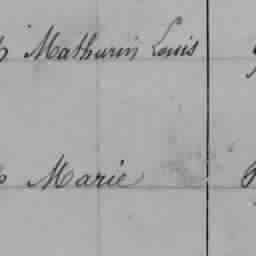 Mathurin Louis
Marie